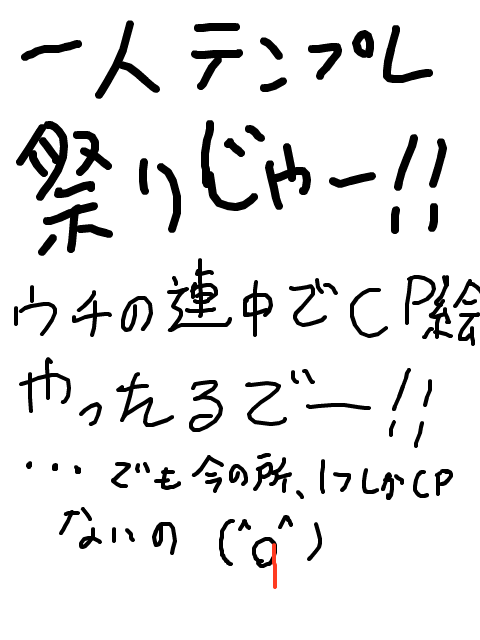 一人テンプレ
祭りじゃー!!
ウチの連中でCP絵
やったるでー!!
...でも今の所、1つしかCP
ないの (^q^)